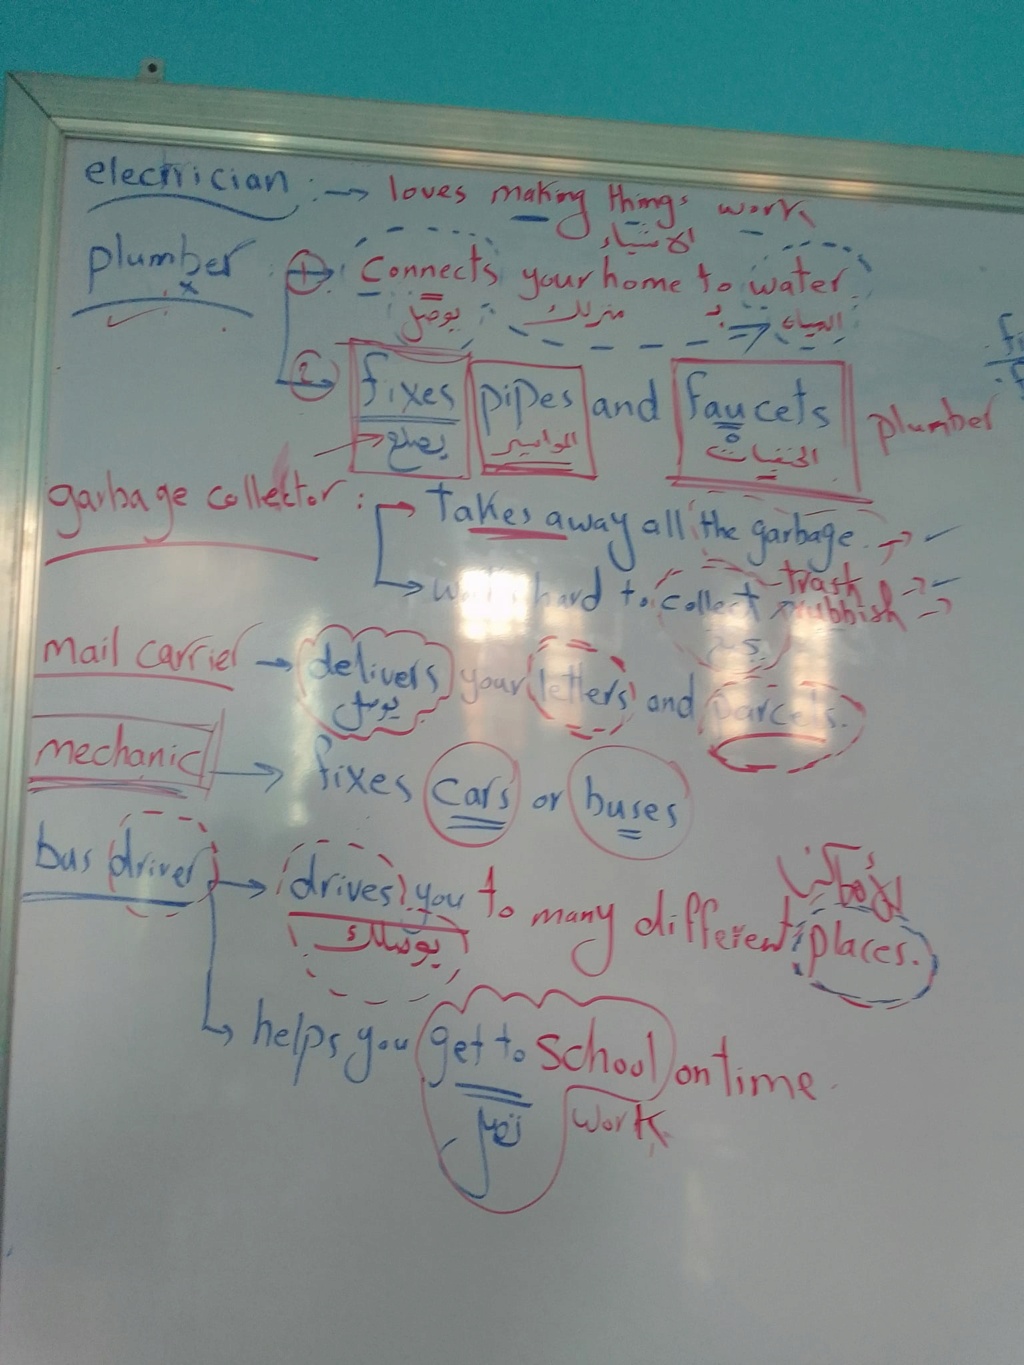 electrician : → loves making things work
الاشياء
plumber : 1 → Connects your home to water.
يوصل منزلك بـ المياه
2 → fixes pipes and faucets plumber
يصلح المواسير الحنفيات
garbage collector : → takes away all the garbage. → ✓
trash → ✓
→ works hard to collect rubbish →
mail carrier → delivers your letters and parcels.
يوصل
mechanic → fixes cars or buses
bus driver → drives you to many different places.
يوصلك الأماكن
→ helps you get to school on time.
تصل work